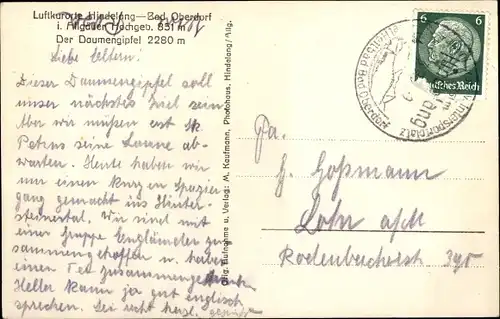 Luftkurorte Hindelang—Bad Oberdorf
i. Allgäuer Hochgeb. 831 m
Der Daumengipfel 2280 m
Liebe Eltern!
Dieser Daumengipfel soll
unser nächstes Ziel sein
Aber wir müssen erst St.
Petrus seine Laune ab-
warten. Heute haben wir
nur einen kurzen Spazier
gang gemacht ins Hinter-
steinertal. Wir sind mit
einer Gruppe Engländer zu-
sammengetroffen u. haben
einen Tee zusammen
Heller kann ja gut englisch
sprechen. Seid recht herzl. gegrüßt
Orig. Aufnahme u. Verlag: M. Kaufmann, Photohaus, Hindelang/Allg.
6 6
Deutsches Reich
Hindelang Bad Oberdorf
Wintersportplatz
Fa.
G. Hoßmann
Lohr a/M
Rodenbacherstr. 390